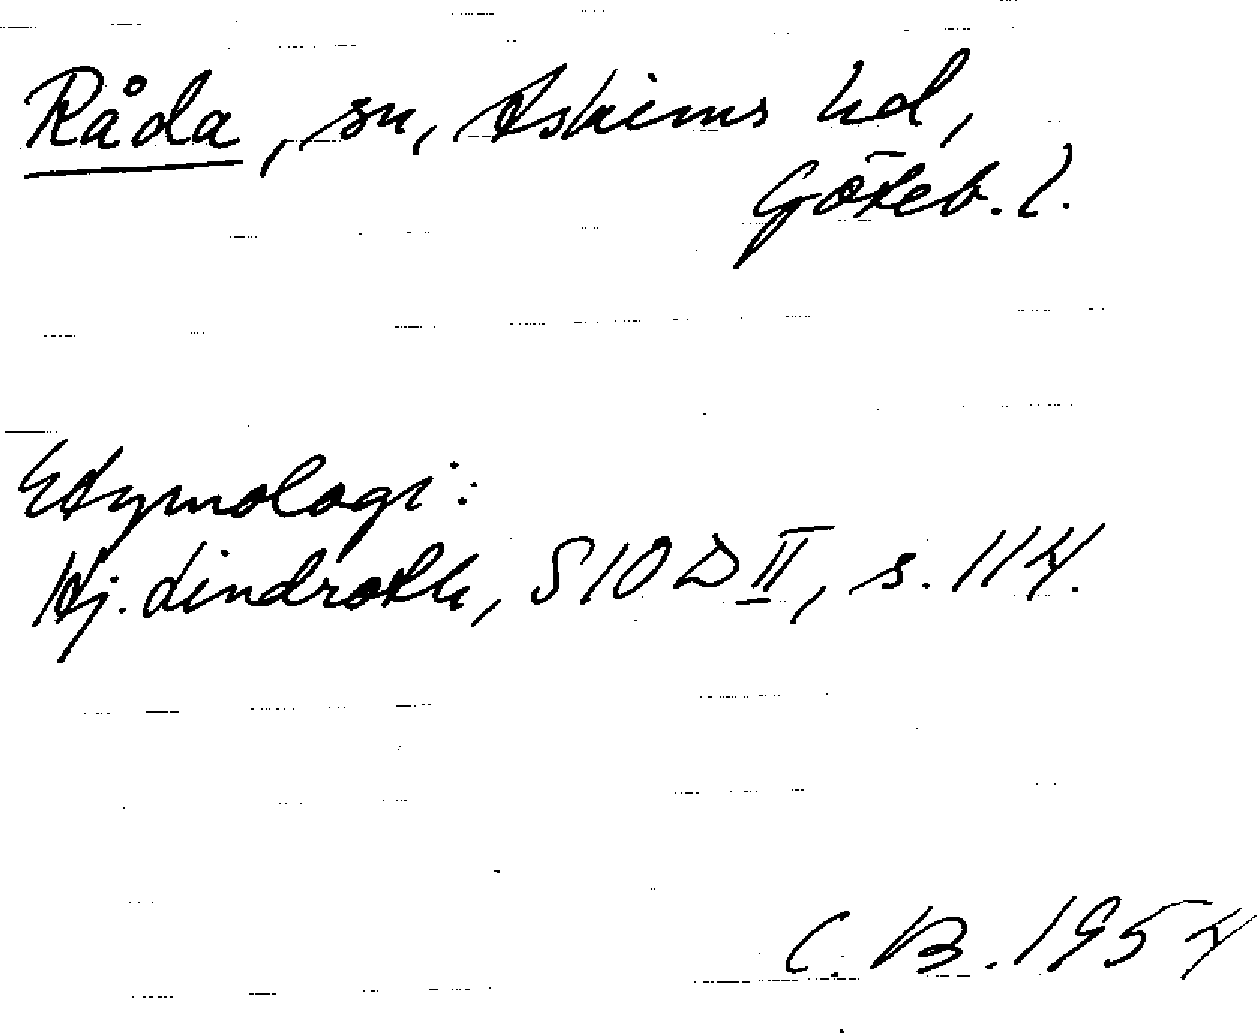 Råda, sn, Askims hd,
Göteb. l.
Etymologi:
Hj. Lindroth, SIOD II, s. 114.
C. B. 1954